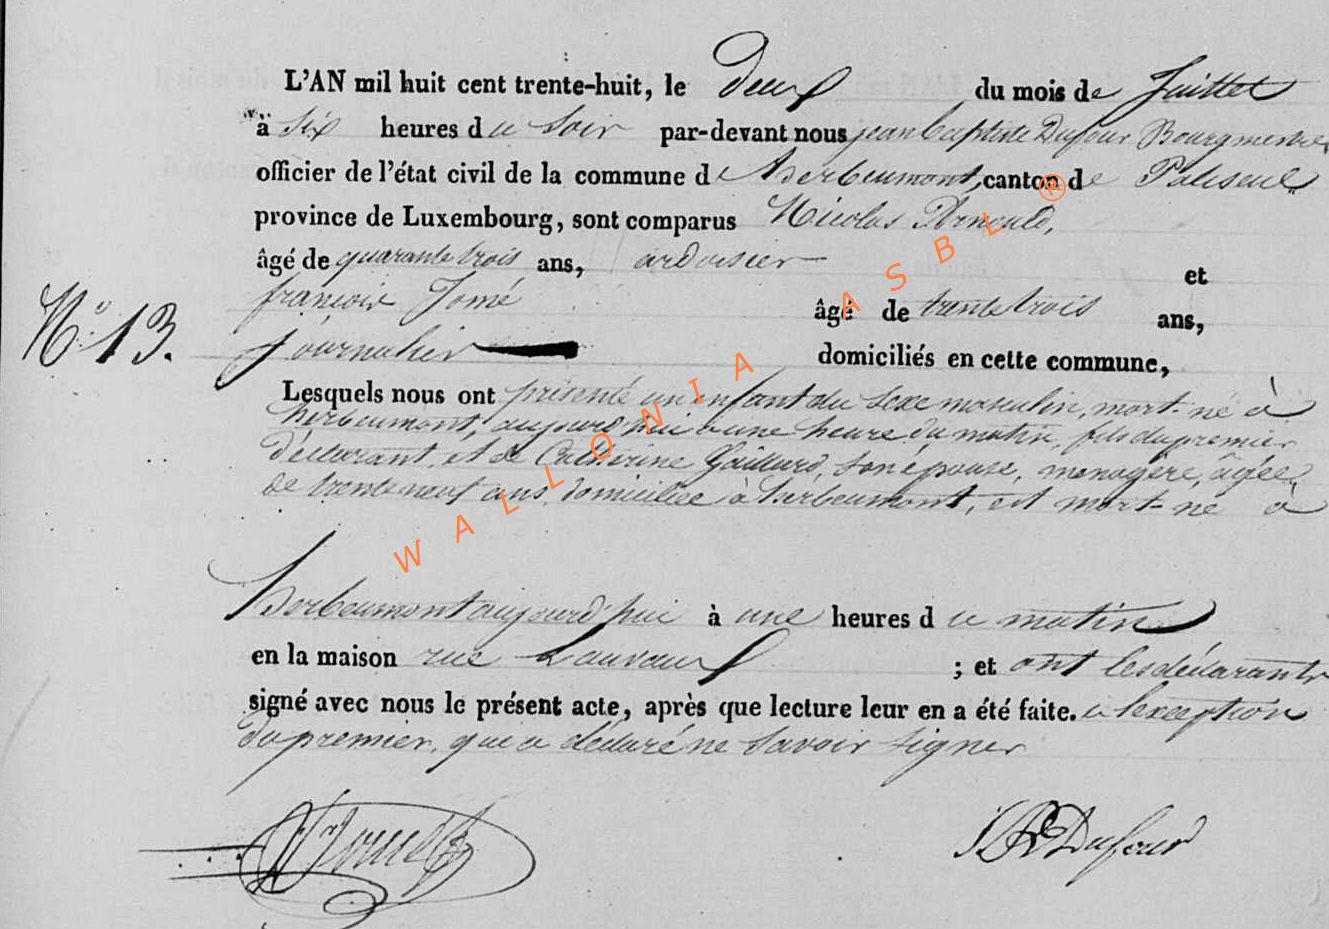 L'AN mil huit cent trente-huit, le Deux du mois de Juillet
à six heures du soir par-devant nous jean baptiste Dufour Bourgmestre,
officier de l'état civil de la commune de herbeumont, canton de Paliseul
province de Luxembourg, sont comparus Nicolas Arnould,
âgé de quarante trois ans, ardoisier et
françois Jomé âgé de trente trois ans,
N° 13.
journalier domiciliés en cette commune,
Lesquels nous ont présenté un enfant du sexe masculin, mort-né à
herbeumont, aujourd'hui a une heure du matin, fils du premier
déclarant, et de Catherine Gaillard, son épouse, menagère, âgée
de trente neuf ans, domiciliée à herbeumont, est mort-né à
herbeumont aujourd'hui à une heures du matin
en la maison rue Lauvaux ; et ont les déclarants
signé avec nous le présent acte, après que lecture leur en a été faite. a l'exception
du premier, qui a déclaré ne savoir signer
JB Dufour
WALLONIA ASBL ®